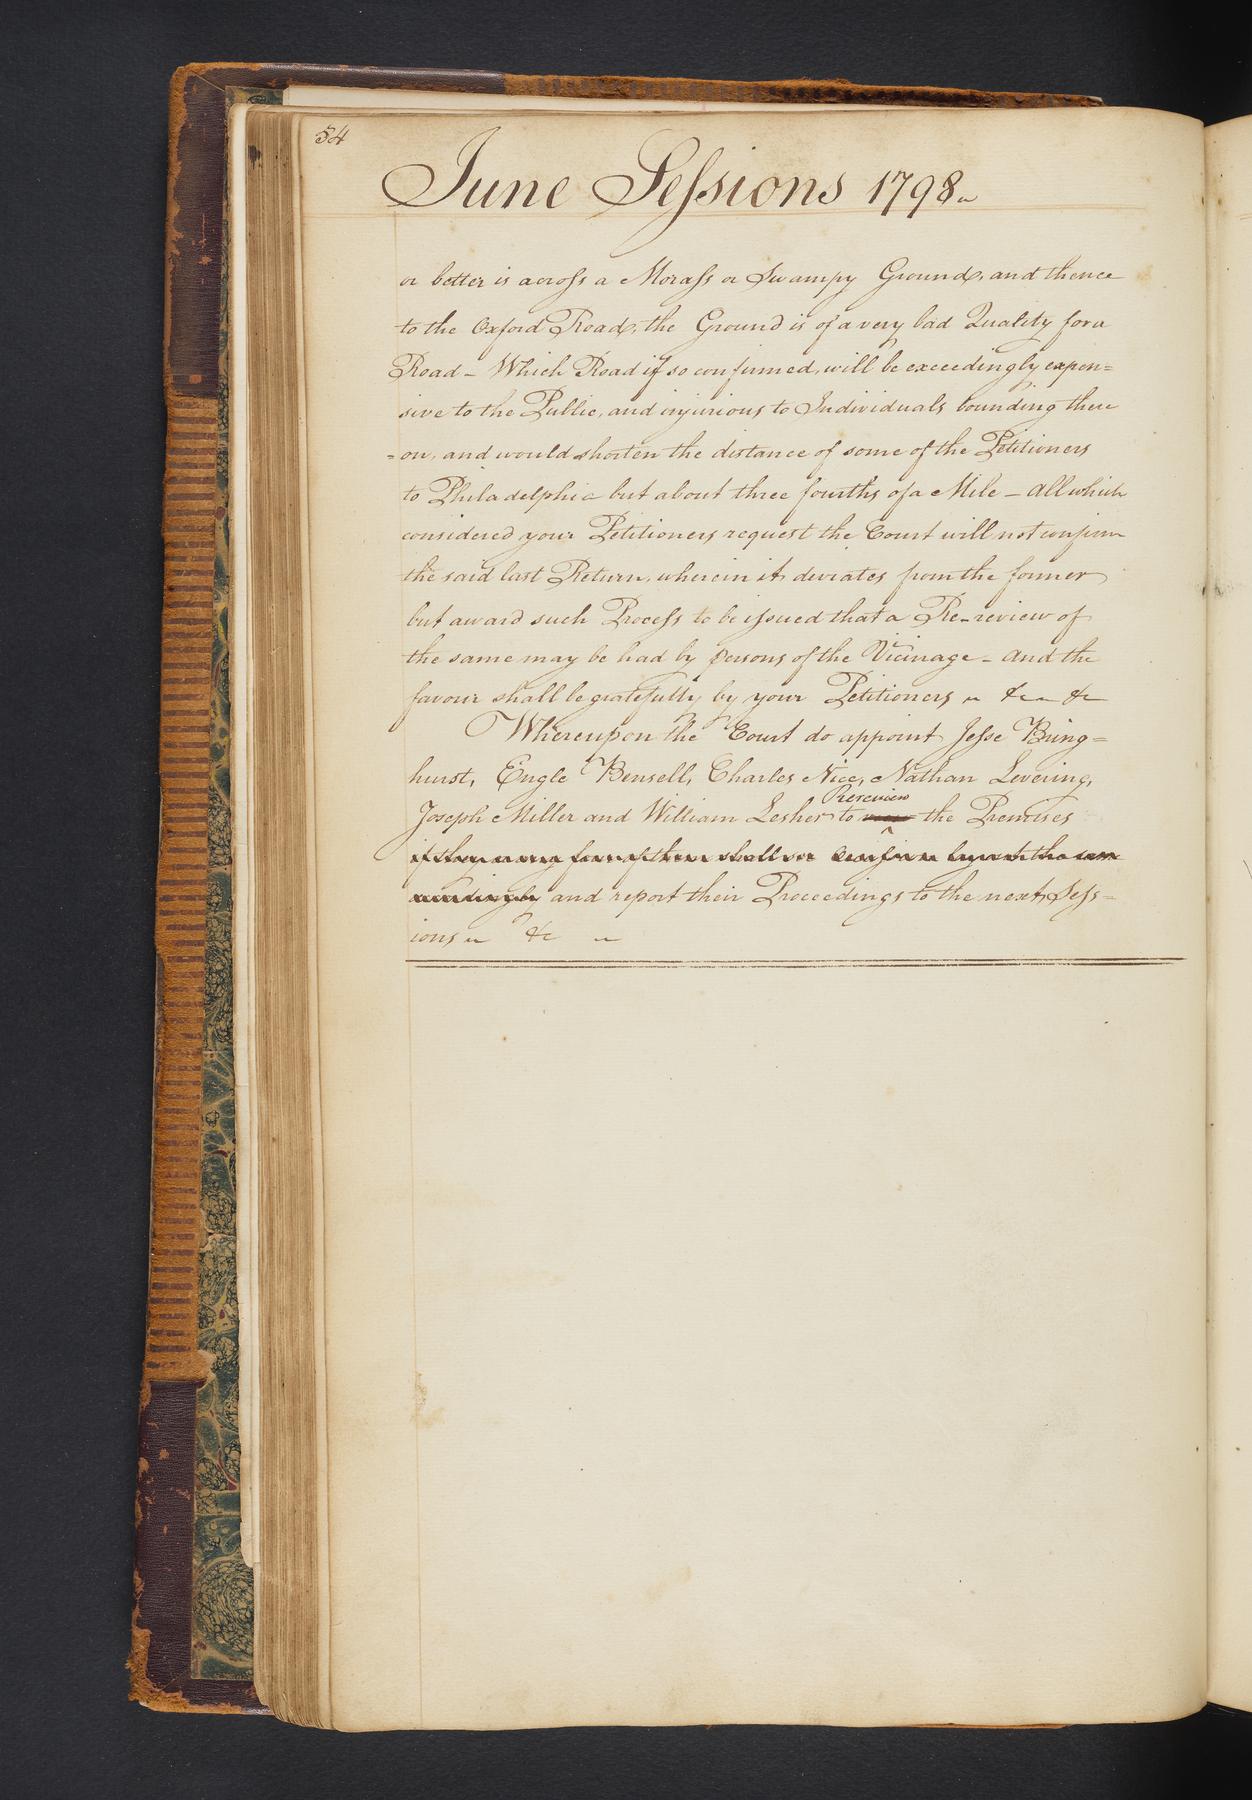 54
June Sessions 1798
or better is across a Morass or Swampy Ground, and thence
to the Oxford Road, the Ground is of a very bad Quality for a
Road – Which Road if so confirmed, will be exceedingly expen=
sive to the Public, and injurious to Individuals bounding there
=on, and would shorten the distance of some of the Petitioners
to Philadelphia but about three fourths of a Mile – All which
considered your Petitioners request the Court will not confirm
the said last Return, wherein it deviates from the former
but award such Process to be issued that a Re-review of
the same may be had by persons of the Vicinage – And the
favour shall be gratefully by your Petitioners &c &c
Whereupon the Court do appoint Jesse Bring=
hurst, Engle Bensell, Charles Nice, Nathan Levering,
Rereview
Joseph Miller and William Lesher to the Premises
if they or any four of them shall
and report their Proceedings to the next Sess=
ions &c